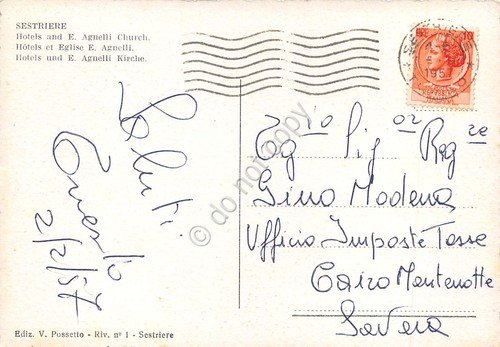 SESTRIERE
Hotels and E. Agnelli Church.
Hôtels et Eglise E. Agnelli.
Hotels und E. Agnelli Kirche.
Saluti
Ernesto
2/2/57
Eg io Sig or Rag re
Gino Modena
Ufficio Imposte Tasse
Cairo Montenotte
Savona
Ediz. V. Possetto - Riv. n° 1 - Sestriere
© do not copy